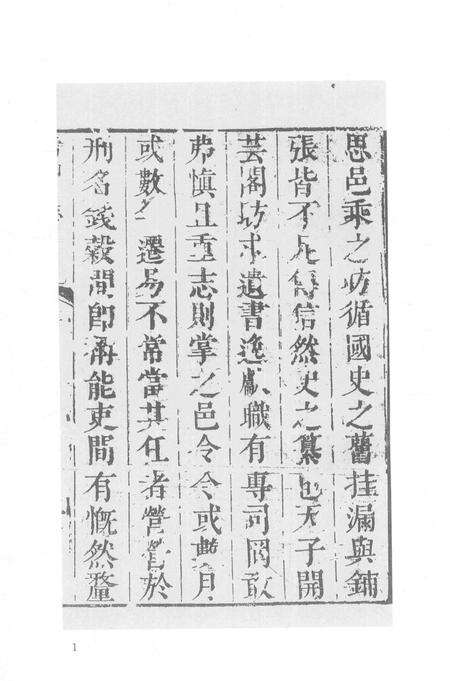 思邑乘之昉循國史之舊挂漏與鋪
張皆不足信然史之纂也天子開
芸閣訪求遺書逸獻職有專司罔敢
弗慎且重志則掌之邑令令或數月
或數年遷易不常當其任者營營於
刑名錢穀間即有能吏間有慨然釐
1